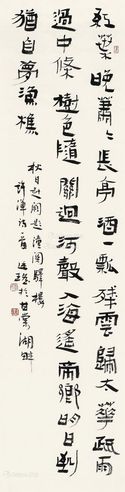 紅葉晚蕭〻長亭酒一瓢殘雲歸太華疏雨
過中條樹色隨關迥河聲入海遙帝鄉明日到
猶自夢漁樵
秋日赴闕題潼關驛樓
許渾詩 於甘棠湖畔